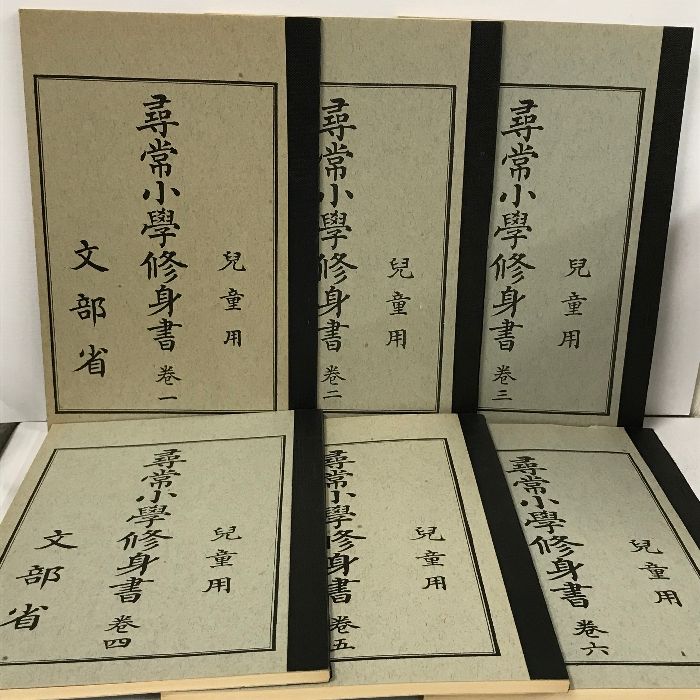 兒童用
尋常小學修身書 卷一
文部省
兒童用
尋常小學修身書 卷二
兒童用
尋常小學修身書 卷三
兒童用
尋常小學修身書 卷四
文部省
兒童用
尋常小學修身書 卷五
兒童用
尋常小學修身書 卷六